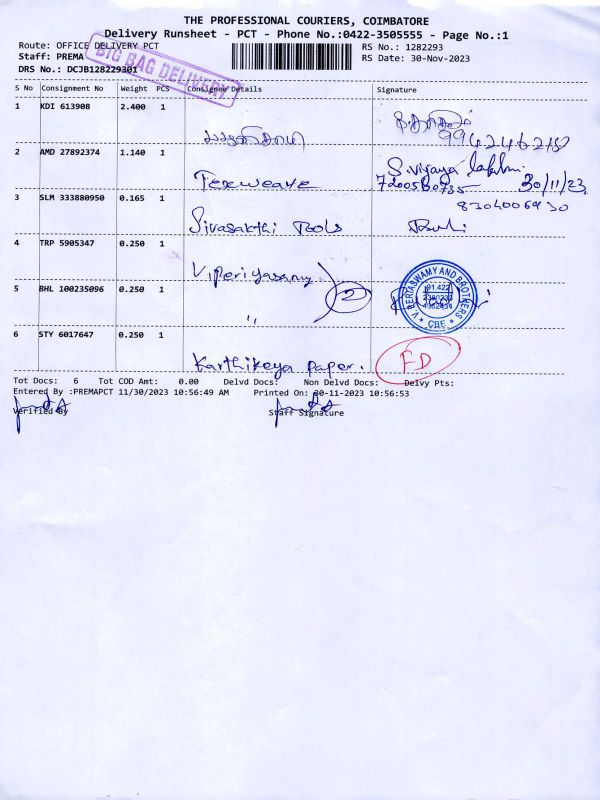 THE PROFESSIONAL COURIERS, COIMBATORE
Delivery Runsheet - PCT - Phone No.:0422-3505555 - Page No.:1
Route: OFFICE DELIVERY PCT
RS No.: 1282293
Staff: PREMA
RS Date: 30-Nov-2023
DRS No.: DCJB128229301
BIG BAG DELIVERY
S No Consignment No Weight PCS Consignee Details Signature
1 KDI 613908 2.400 1
2 AMD 27892374 1.140 1 Texweave S.vijaya lakshmi
30/11/23
8304006930
3 SLM 333880950 0.165 1 Sivasakthi Tools
4 TRP 5905347 0.250 1 V.Periyasamy
5 BHL 100235096 0.250 1 " 2
CBE
6 STY 6017647 0.250 1 Karthikeya paper. FD
Tot Docs: 6 Tot COD Amt: 0.00 Delvd Docs: Non Delvd Docs: Delvy Pts:
Entered By :PREMAPCT 11/30/2023 10:56:49 AM Printed On: 30-11-2023 10:56:53
Verified By Staff Signature